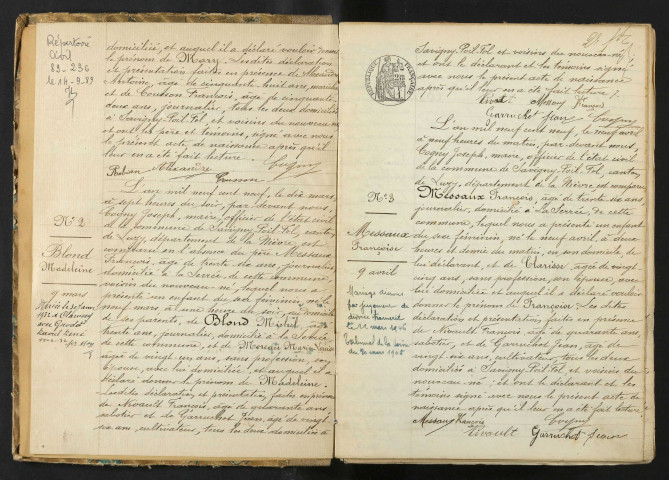 Répertoire
Civil
83-236
le 14-9-83
domiciliée, et auquel il a déclaré vouloir donner
le prénom de Mary. Lesdites déclaration
et présentation faites en présence de Alexandre
Antoine, âgé de cinquante huit ans,
et de Cousson François, âgé de cinquante
deux ans, journalier, tous les deux domiciliés
à Savigny-Poil-Fol, et voisins du nouveau-né
et ont les père et témoins, signé avec nous
le présent acte de naissance après qu'il
leur en a été fait lecture
Alexandre Cousson Cogny
N° 2
Blond
Madeleine
9 mars
L'an mil neuf cent neuf, le dix mars
à sept heures du soir, par devant nous
Cogny Joseph, maire, officier de l'état civil
de la commune de Savigny-Poil-Fol, canton
de Luzy, département de la Nièvre, est
comparu en l'absence du père Messaux
François, âgé de trente ans, journalier,
domicilié à La Serrée de cette commune,
voisin du nouveau-né, lequel nous a
présenté un enfant du sexe féminin, né le
neuf mars à une heure du soir, au domicile
de ses parents, de Blond Michel, âgé
trente ans, journalier, domicilié à la Serrée
de cette commune, et de Marie Louise
âgée de vingt un ans, sans profession, son
épouse, avec lui domiciliée, et auquel il a
déclaré donner le prénom de Madeleine.
Lesdites déclaration et présentation, faites en présence
de Nivault François, âgé de quarante ans,
sabotier et de Garruchot Jean, âgé de vingt-
six ans, cultivateur, tous les deux domiciliés à
RÉPUBLIQUE FRANÇAISE
Savigny-Poil-Fol et voisins du nouveau-né
et ont le déclarant et les témoins signé
avec nous le présent acte de naissance
après qu'il leur en a été fait lecture
Nivault Messaux François
Garruchot Jean Cogny
N° 3
Messaux
Françoise
9 avril
L'an mil neuf cent neuf, le neuf avril
à neuf heures du matin, par devant nous,
Cogny Joseph, maire, officier de l'état civil de
la commune de Savigny-Poil-Fol, canton
de Luzy, département de la Nièvre est comparu
Messaux François, âgé de trente ans
journalier, domicilié à La Serrée de cette
commune, lequel nous a présenté un enfant
du sexe féminin, né le neuf avril, à deux
heures et demie du matin, en son domicile, de
lui déclarant, et de Clarisse âgée de vingt
cinq ans, sans profession, son épouse, avec
lui domiciliée et auquel il a déclaré vouloir
donner le prénom de Françoise. Lesdites
déclaration et présentation, faites en présence
de Nivault François, âgé de quarante ans,
sabotier, et de Garruchot Jean, âgé de
vingt-six ans, cultivateur, tous les deux
domiciliés à Savigny-Poil-Fol, et voisins du
nouveau-né; et ont le déclarant et les
témoins signé avec nous le présent acte de
naissance après qu'il leur en a été fait lecture
Messaux François Cogny
Nivault Garruchot Jean